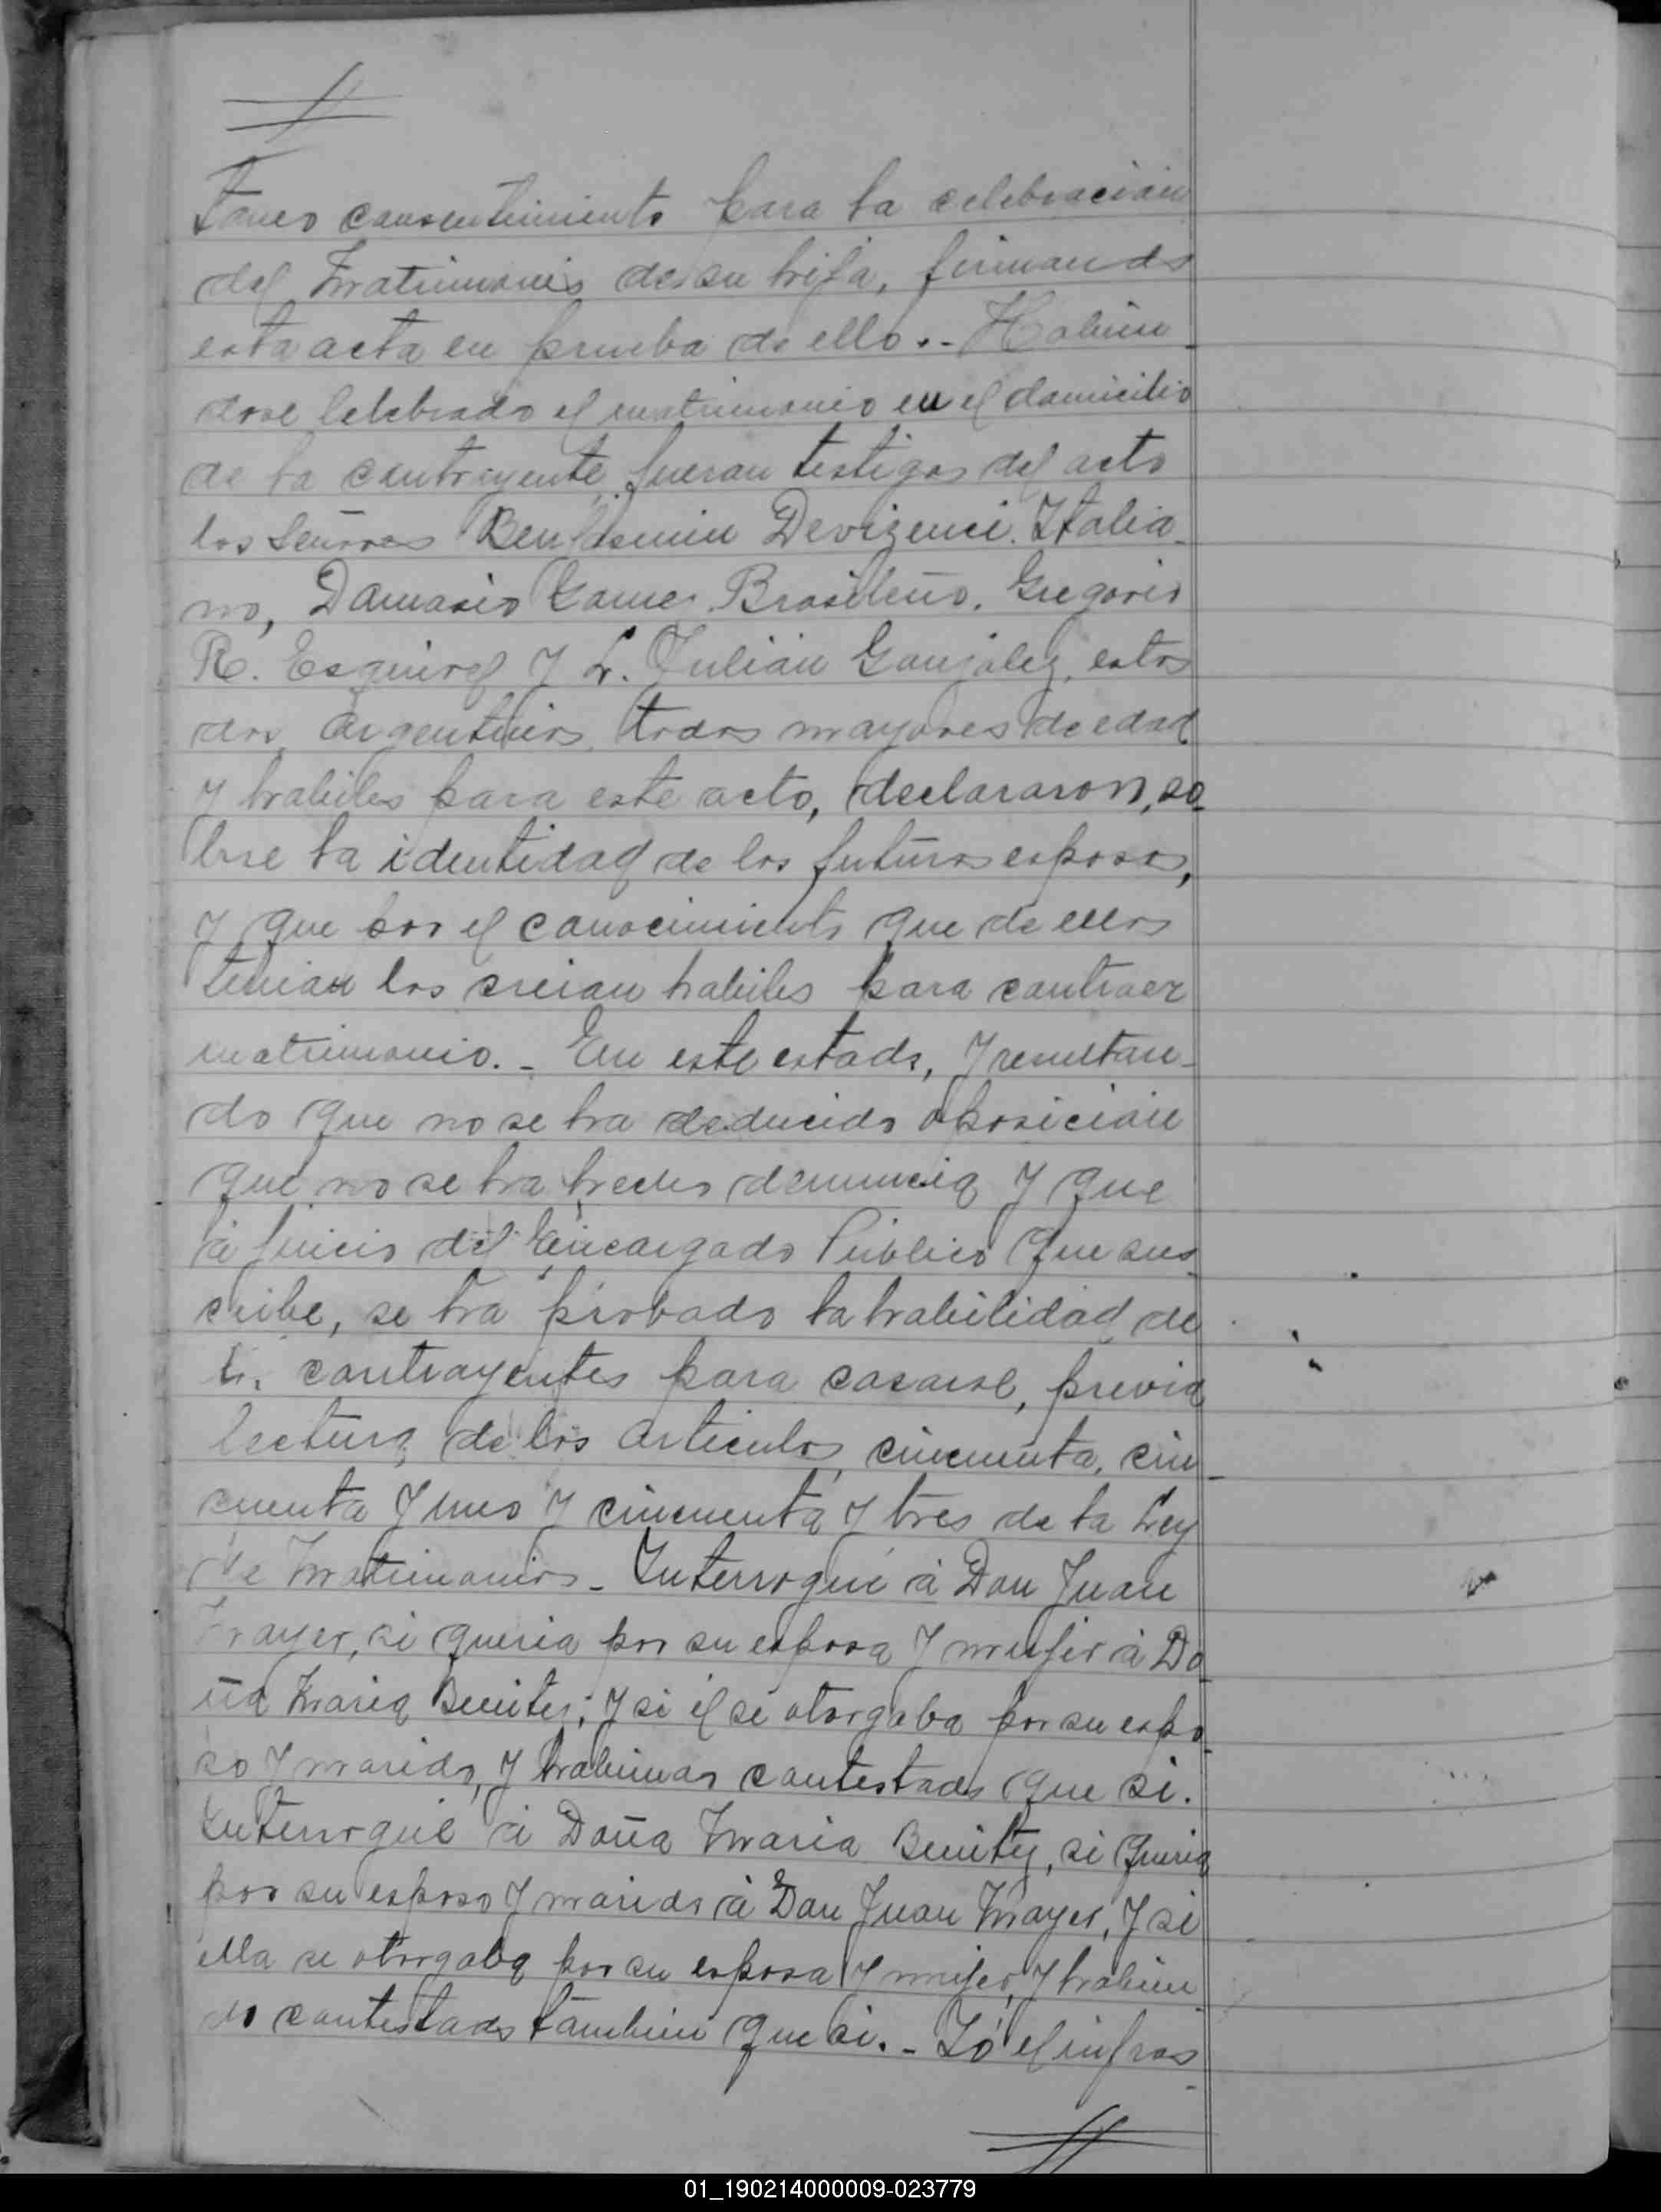 taneo consentimiento para la celebracion
del Matrimonio de su hija, firmando
esta acta en prueba de ello.- Habien
dose Celebrado el matrimonio en el domicilio
de la contrayente, fueran testigos del acto
los Señores Benjasmin Devizenci. Italia-
no, Damasio Gomes Brasileño. Gregorio
R. Esquivel y L. Julián González, estos
dos, Argentinos, todos mayores de edad
y habiles para este acto, declararon, so
bre la identidad de los futuros esposos,
y que por el conocimiento que de ellos
tenian los creian habiles para contraer
matrimonio. - En este estado, y resultan-
do que no se ha deducido oposición
que no se ha hecho denuncia y que
á juicio del Encargado Público que sus
cribe, se ha probado la habilidad de
contrayentes para casarse, previa
lectura de los articulos, cincuenta, cin-
cuenta y uno y cincuenta y tres de la Ley
de Matrimonios - Interrogué á Don Juan
Mayer, si queria por su esposa y mujer á Do
ña Maria Benitez; y si él se otorgaba por su espo
so y marido, y habiendo contestado que si.
Interrogué á Doña Maria Benitez, si queria
por su esposo y marido á Don Juan Mayer, y si
ella se otorgaba por su esposa y mujer, y habien
do contestado tambien que si. - Yó el infras
01_190214000009-023779